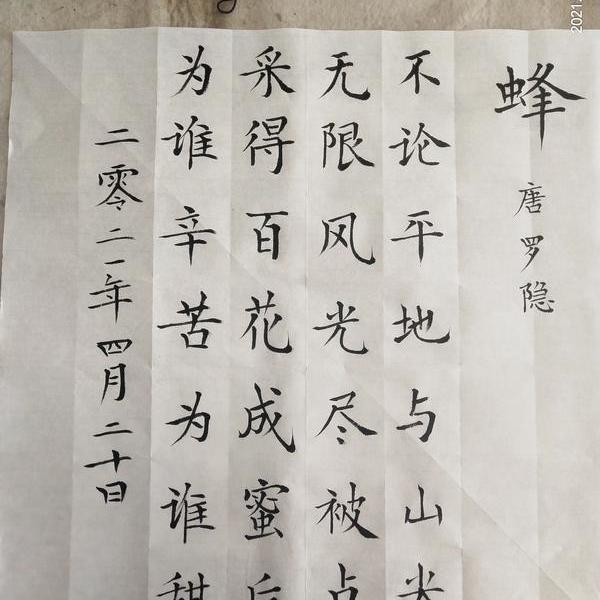 蜂
唐罗隐
不论平地与山尖
无限风光尽被占
采得百花成蜜后
为谁辛苦为谁甜
二零二一年四月二十日
2021.